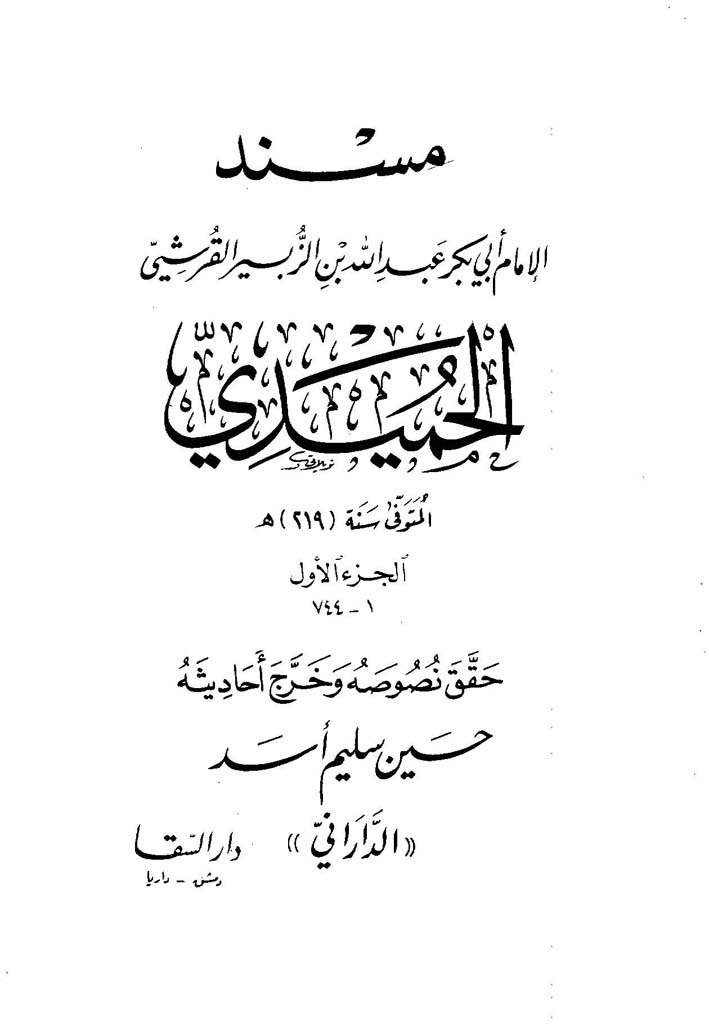 مسند
الإمام أبي بكر عَبدِ اللهِ بْنِ الزُّبير القُرَشِيّ
الحُمَيْدِيّ
المُتَوَفّى سَنَة (٢١٩) هـ
الجزء الأول
١ - ٧٤٤
حَقَّقَ نُصُوصَهُ وَخَرَّجَ أَحَادِيثَهُ
حسين سليم أسد
«الدَّارَانيّ»
دار السّقا
دمشق - داريا